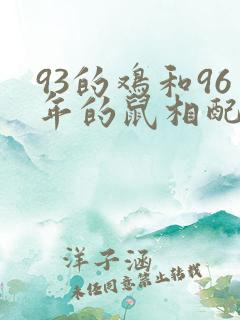 93的鸡和96
年的鼠相配
洋子涵
未经同意禁止转载